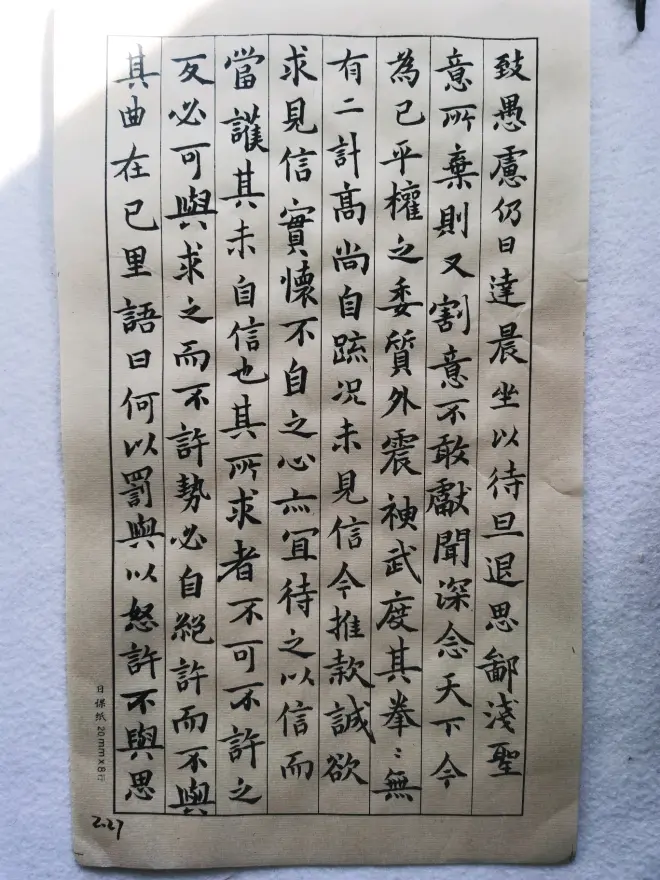 致愚慮仍日達晨坐以待旦退思鄙淺聖
意所棄則又割意不敢獻聞深念天下今
為已平權之委質外震神武度其拳〻無
有二計高尚自踈况未見信今推款誠欲
求見信實懷不自之心亦宜待之以信而
當護其未自信也其所求者不可不許之
反必可與求之而不許勢必自絕許而不與
其曲在已里語曰何以罰與以怒許不與思
日课纸 20mm x 8行
2.27